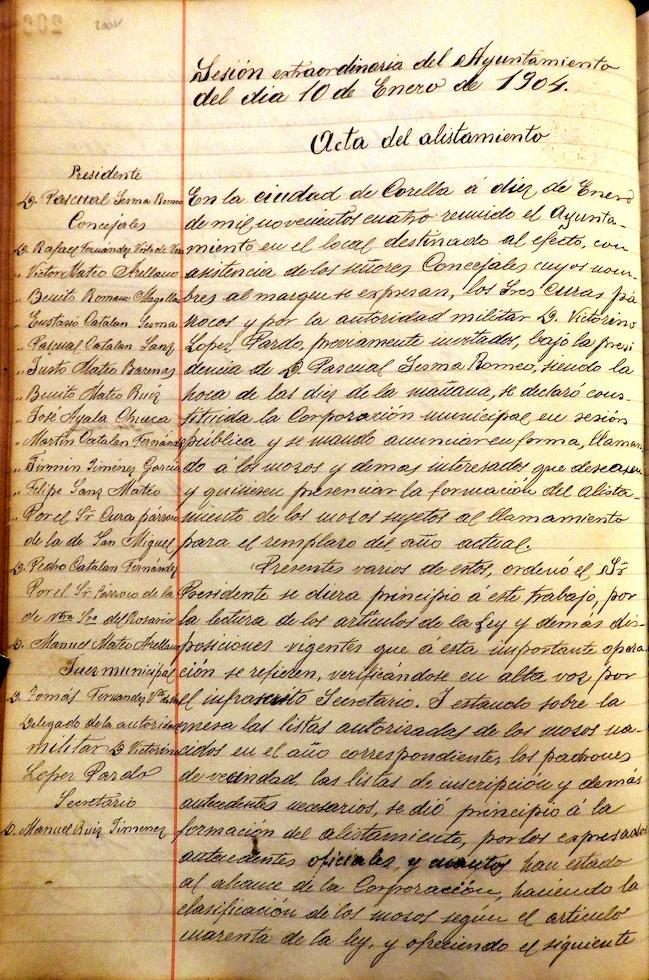 200v
Sesión extraordinaria del Ayuntamiento
del dia 10 de Enero de 1904.
Acta del alistamiento
Presidente
D. Pascual Sesma Romeo
Concejales
D. Rafael Fernández Vizº de Vera
„ Victor Mateo Arellano
„ Benito Romano Magallon
„ Eustasio Catalan Sesma
„ Pascual Catalan Sanz
„ Justo Mateo Barenas
„ Benito Mateo Ruiz
„ José Ayala Chueca
„ Martin Catalan Fernández
„ Fermin Jiménez Garcia
„ Felipe Sanz Mateo
„ Por el Sr Cura párroco
de la de San Miguel
D. Pedro Catalan Fernández
Por el Sr Párroco de la
de ntra Sra del Rosario
D. Manuel Mateo Arellano
Juez municipal
D. Tomás Fernandez
Delegado de la autoridad
militar D. Victorino
Lopez Pardo
Secretario
D. Manuel Ruiz Jimenez
En la ciudad de Corella á diez de Enero
de mil novecientos cuatro reunido el Ayunta-
miento en el local destinado al efecto, con
asistencia de los señores Concejales cuyos nom-
bres al margen se expresan, los Sres Curas pá
rrocos y por la autoridad militar D. Victorino
Lopez Pardo, previamente invitados, bajo la presi
dencia de D. Pascual Sesma Romeo, siendo la
hora de las diez de la mañana, se declaró cons-
tituida la Corporación municipal en sesión
pública y se mandó anunciar en forma, llaman
do á los mozos y demas interesados que deseasen
y quisiesen presenciar la formación del alista-
miento de los mozos sujetos al llamamiento
para el remplazo del año actual.
Presentes varios de estos, ordenó el Sr
Presidente se diera principio á este trabajo, por
la lectura de los artículos de la Ley y demás dis-
posiciones vigentes que á esta importante opera
ción se refieren, verificándose en alta voz por
el infrascrito Secretario. Y estando sobre la
mesa las listas autorizadas de los mozos na-
cidos en el año correspondiente, los padrones
de vecindad, las listas de inscripción y demás
antecedentes necesarios, se dió principio á la
formación del alistamiento, por los expresados
antecedentes oficiales y cuantos han estado
al alcance de la Corporación, haciendo la
clasificación de los mozos según el artículo
cuarenta de la ley, y ofreciendo el siguiente